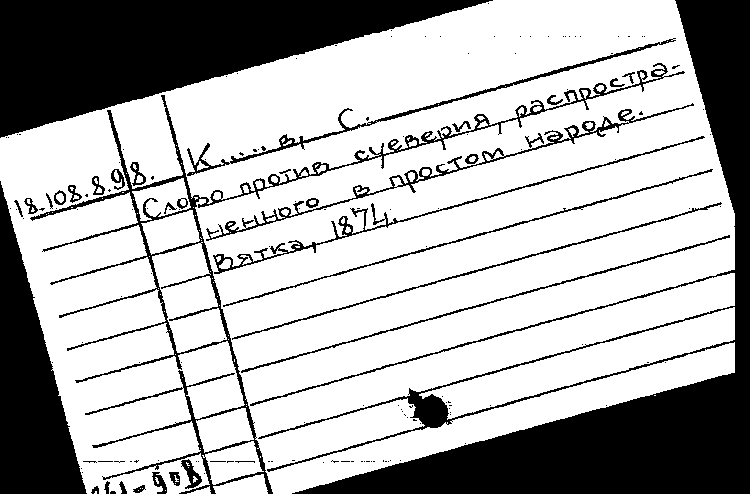 18.108.8.98.
К.....в, С.
Слово против суеверия, распростра-
ненного в простом народе.
Вятка, 1874.